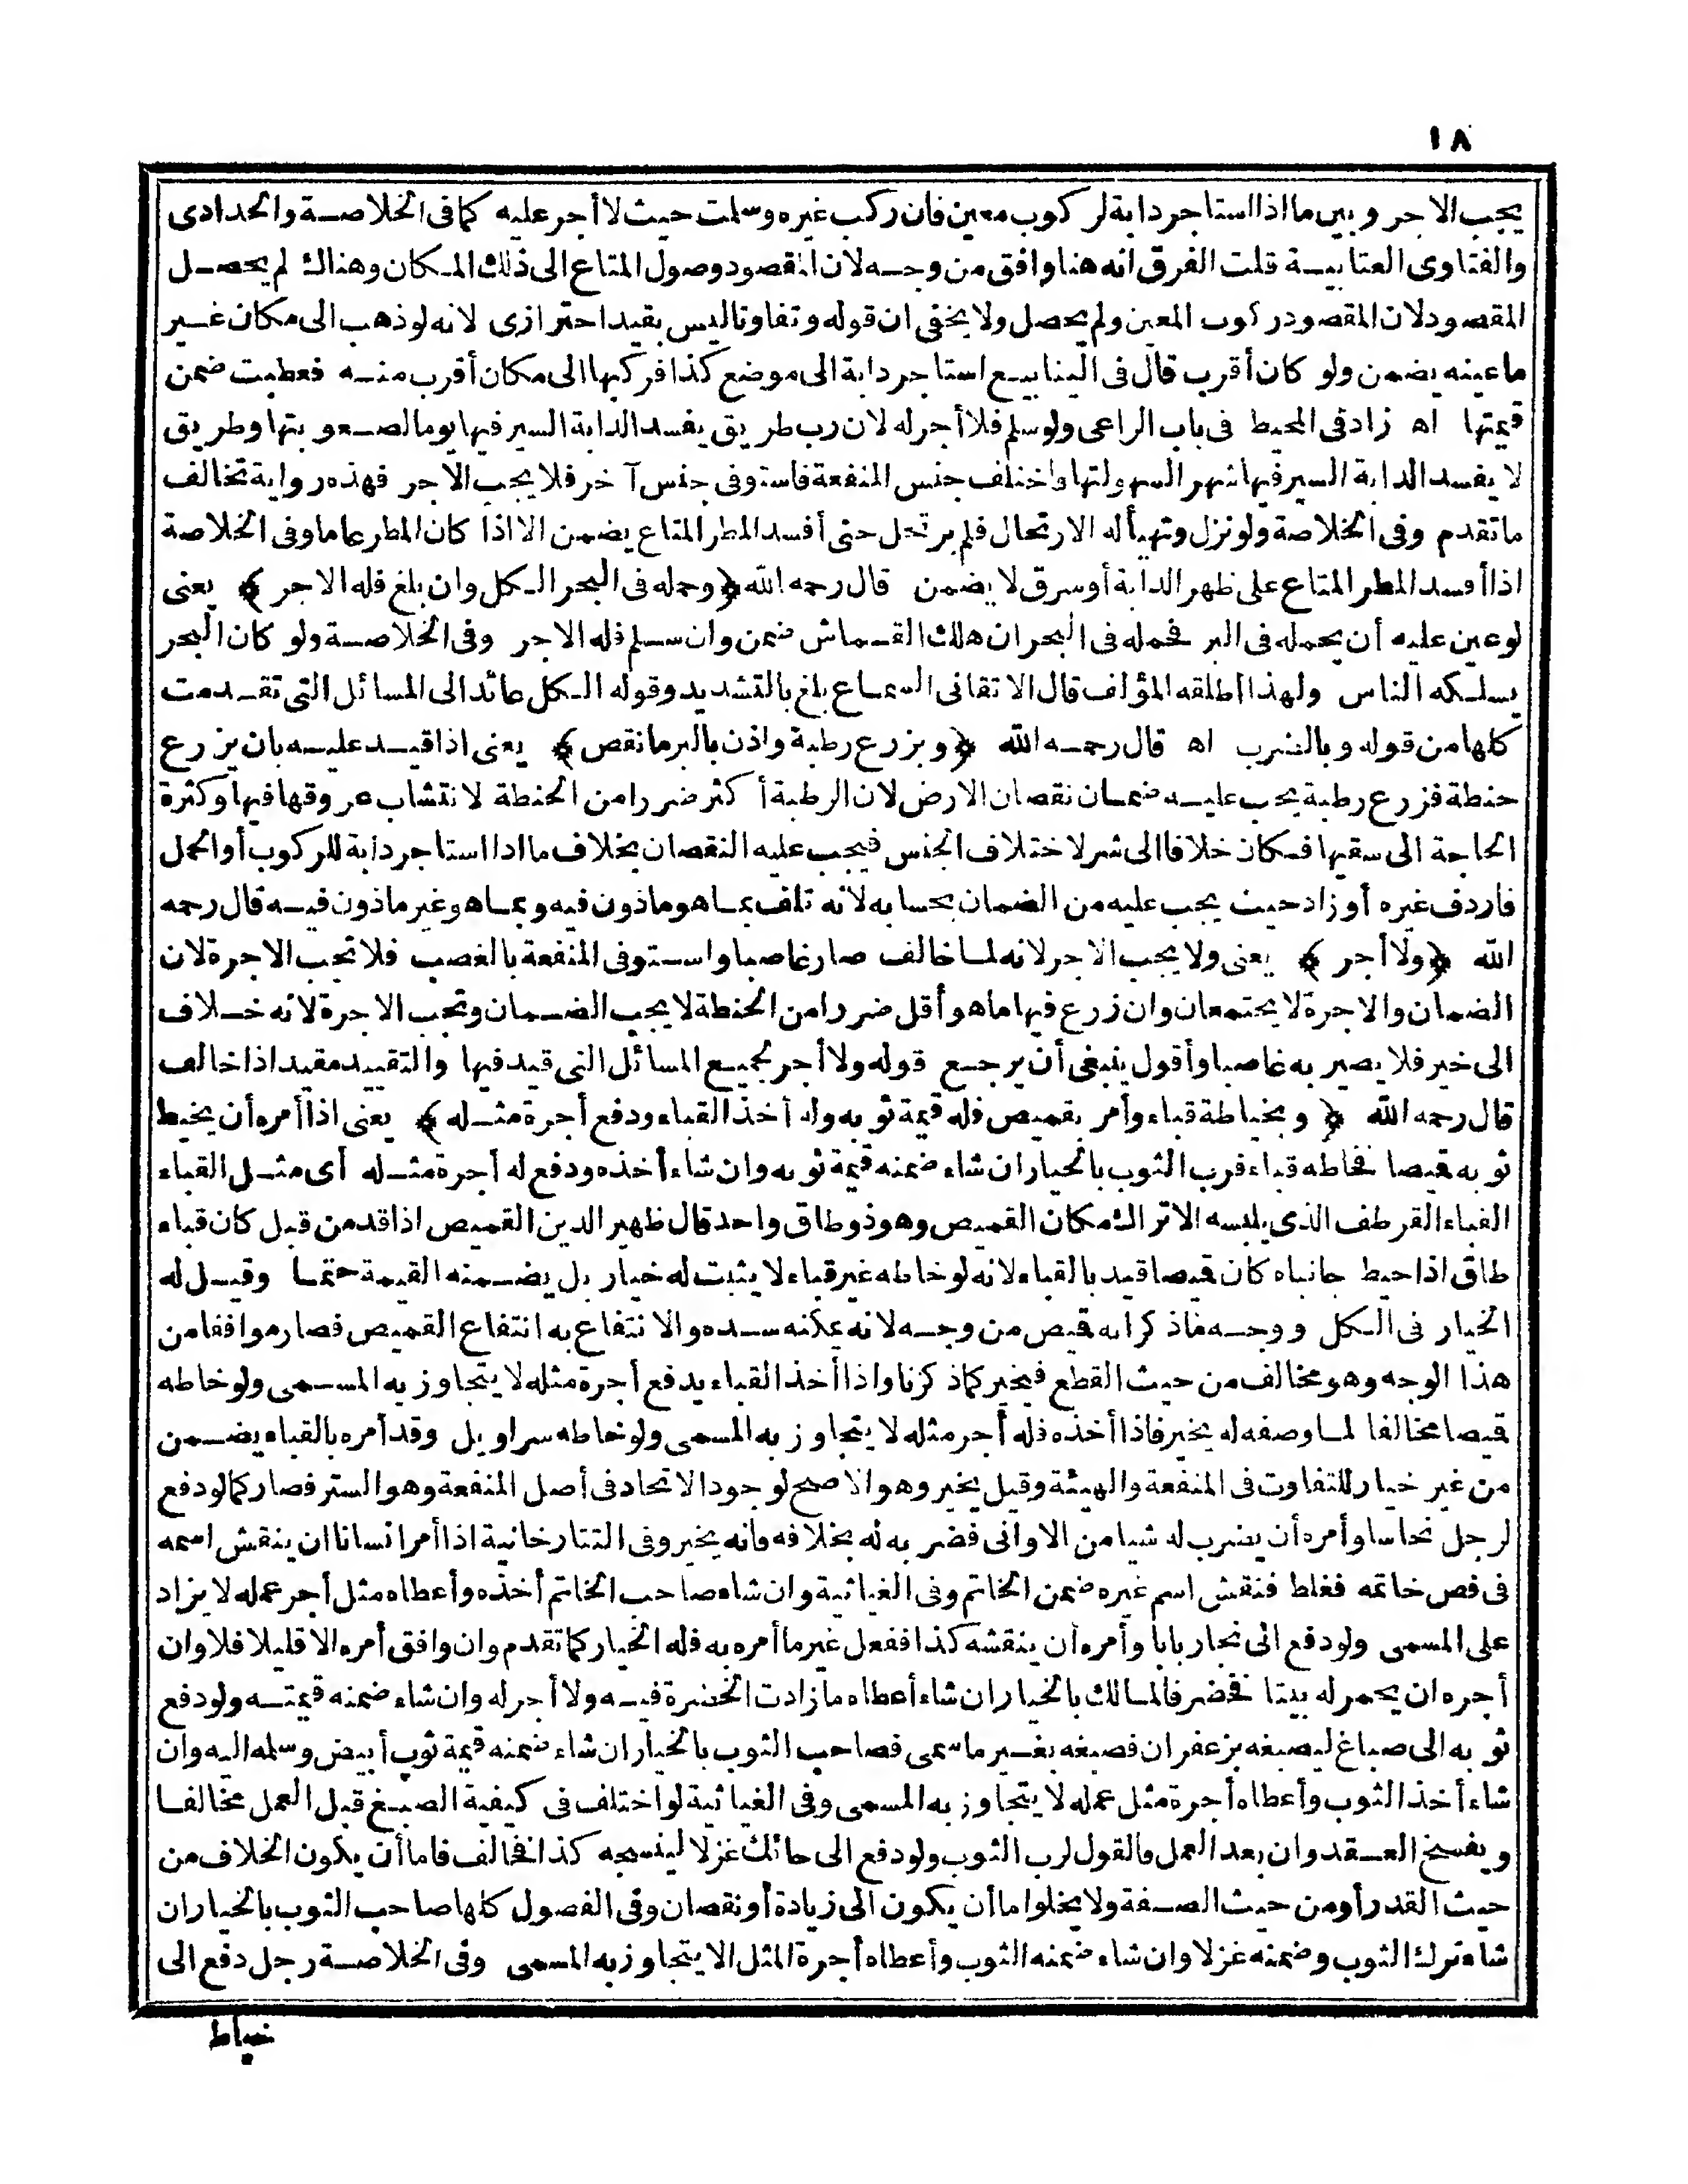 ١٨
يجب الاجر وبين ما اذا استاجر دابة لركوب معين فان ركب غيره وسلمت حيث لا أجر عليه كما فى الخلاصة والحدادى
والفتاوى العتابية قلت الفرق انه هنا وافق من وجه لان المقصود وصول المتاع الى ذلك المكان وهناك لم يحصل
المقصود لان المقصود ركوب المعين ولم يحصل ولا يخفى ان قوله وتفاوتا ليس بقيد احترازى لانه لو ذهب الى مكان غير
ما عينه يضمن ولو كان أقرب قال فى الينابيع استاجر دابة الى موضع كذا فركبها الى مكان أقرب منه فعطبت ضمن
قيمتها اه زاد فى المحيط فى باب الراعى ولو سلم فلا أجر له لان رب طريق يفسد الدابة السير فيها يوما لصعوبتها وطريق
لا يفسد الدابة السير فيها شهرا لسهولتها واختلف جنس المنفعة فاستوفى جنس آخر فلا يجب الاجر فهذه رواية تخالف
ما تقدم وفى الخلاصة ولو نزل وتهيأ له الارتحال فلم يرتحل حتى أفسد المطر المتاع يضمن الا اذا كان المطر عاما وفى الخلاصة
اذا أفسد المطر المتاع على ظهر الدابة أو سرق لا يضمن قال رحمه الله ﴿وحمله فى البحر الكل وان بلغ فله الاجر﴾ يعنى
لو عين عليه أن يحمله فى البر فحمله فى البحر ان هلك القماش ضمن وان سلم فله الاجر وفى الخلاصة ولو كان البحر
يسلكه الناس ولهذا اطلقه المؤلف قال الاتقانى السماع بلغ بالتشديد وقوله الكل عائد الى المسائل التى تقدمت
كلها من قوله وبالضرب اه قال رحمه الله ﴿وبزرع رطبة واذن بالبر ما نقص﴾ يعنى اذا قيد عليه بان يزرع
حنطة فزرع رطبة يجب عليه ضمان نقصان الارض لان الرطبة أكثر ضررا من الحنطة لانتشاب عروقها فيها وكثرة
الحاجة الى سقيها فكان خلافا الى شر لاختلاف الجنس فيجب عليه النقصان بخلاف ما اذا استاجر دابة للركوب أو الحمل
فأردف غيره أو زاد حيث يجب عليه من الضمان بحسابه لانه تلف بما هو ماذون فيه وبما هو غير ماذون فيه قال رحمه
الله ﴿ولا أجر﴾ يعنى ولا يجب الاجر لانه لما خالف صار غاصبا واستوفى المنفعة بالغصب فلا تجب الاجرة لان
الضمان والاجرة لا يجتمعان وان زرع فيها ما هو أقل ضررا من الحنطة لا يجب الضمان وتجب الاجرة لانه خلاف
الى خير فلا يصير به غاصبا وأقول ينبغى أن يرجع قوله ولا أجر لجميع المسائل التى قيد فيها والتقييد مفيد اذا خالف
قال رحمه الله ﴿وبخياطة قباء وأمر بقميص فله قيمة ثوبه وله أخذ القباء ودفع أجرة مثله﴾ يعنى اذا أمره أن يخيط
ثوبه قميصا فخاطه قباء فرب الثوب بالخيار ان شاء ضمنه قيمة ثوبه وان شاء أخذه ودفع له أجرة مثله أى مثل القباء
القباء القرطف الذى يلبسه الاتراك مكان القميص وهو ذو طاق واحد قال ظهير الدين القميص اذا قد من قبل كان قباء
طاق اذا خيط جانباه كان قميصا قيد بالقباء لانه لو خاطه غير قباء لا يثبت له خيار بل يضمنه القيمة حتما وقيل له
الخيار فى الكل ووجه ما ذكر انه قميص من وجه لانه يمكنه سده والانتفاع به انتفاع القميص فصار موافقا من
هذا الوجه وهو مخالف من حيث القطع فيخير كما ذكرنا واذا أخذ القباء يدفع أجرة مثله لا يتجاوز به المسمى ولو خاطه
قميصا مخالفا لما وصفه له يخير فاذا أخذه فله أجر مثله لا يتجاوز به المسمى ولو خاطه سراويل وقد أمره بالقباء يضمن
من غير خيار للتفاوت فى المنفعة والهيئة وقيل يخير وهو الاصح لوجود الاتحاد فى أصل المنفعة وهو الستر فصار كما لو دفع
لرجل نحاسا وأمره أن يضرب له شيا من الاوانى فضرب له بخلافه فانه يخير وفى التتارخانية اذا أمر انسانا ان ينقش اسمه
فى فص خاتمه فغلط فنقش اسم غيره ضمن الخاتم وفى الغياثية وان شاء صاحب الخاتم أخذه وأعطاه مثل أجر عمله لا يزاد
على المسمى ولو دفع الى نجار بابا وأمره أن ينقشه كذا ففعل غير ما أمره به فله الخيار كما تقدم وان وافق أمره الا قليلا فلا وان
أجره ان يحمر له بيتا فخضر فالمالك بالخيار ان شاء أعطاه ما زادت الخضرة فيه ولا أجر له وان شاء ضمنه قيمته ولو دفع
ثوبه الى صباغ ليصبغه بزعفران فصبغه بغير ما سمى فصاحب الثوب بالخيار ان شاء ضمنه قيمة ثوب أبيض وسلمه اليه وان
شاء أخذ الثوب وأعطاه أجرة مثل عمله لا يتجاوز به المسمى وفى الغياثية لو اختلف فى كيفية الصبغ قبل العمل تخالفا
ويفسخ العقد وان بعد العمل فالقول لرب الثوب ولو دفع الى حائك غزلا لينسجه كذا فخالف فاما أن يكون الخلاف من
حيث القدر أو من حيث الصفة ولا يخلو اما أن يكون الى زيادة أو نقصان وفى الفصول كلها صاحب الثوب بالخيار ان
شاء ترك الثوب وضمنه غزلا وان شاء ضمنه الثوب وأعطاه أجرة المثل الا يتجاوز به المسمى وفى الخلاصة رجل دفع الى
خياط